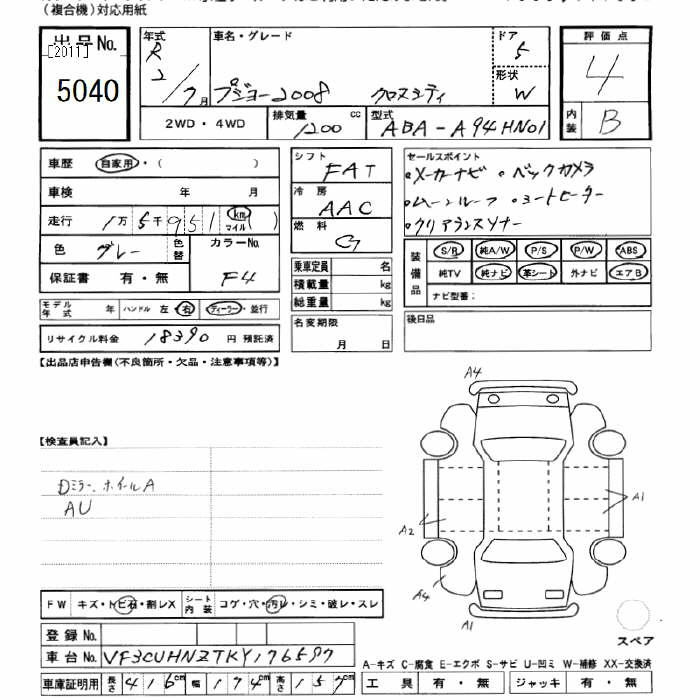 (複合機)対応用紙
出品No. [2011] 5040
年式 R 2/7月 車名・グレード プジョー2008 クロスシティ ドア 5 形状 W
2WD・4WD 排気量 1200 cc 型式 ABA-A94HN01
評価点 4
内装 B
車歴 自家用・( )
車検 年 月
走行 1万5千951 (km マイル)
色 グレー 色替 カラーNo. F4
保証書 有・無
モデル年式 年 ハンドル 左・右 ディーラー・並行
リサイクル料金 18390 円 預託済
シフト FAT
冷房 AAC
燃料 G
乗車定員 名
積載量 kg
総重量 kg
名変期限 月 日
セールスポイント
・メーカーナビ ・バックカメラ
・ムーンルーフ ・シートヒーター
・クリアランスソナー
装備品 S/R 純A/W P/S P/W ABS
純TV 純ナビ 革シート 外ナビ エアB
ナビ型番:
後日品
【出品店申告欄(不良箇所・欠品・注意事項等)】
【検査員記入】
Dミラー、ホイールA
AU
A4
A1
A2
A4
A1
FW キズ・トビ石・割レX シート内装 コゲ・穴・汚レ・シミ・破レ・スレ
登録No.
車台No. VF3CUHNZTKY176587
車庫証明用 長さ 416cm 幅 174cm 高さ 157cm
スペア
A-キズ C-腐食 E-エクボ S-サビ U-凹ミ W-補修 XX-交換済
工具 有・無 ジャッキ 有・無